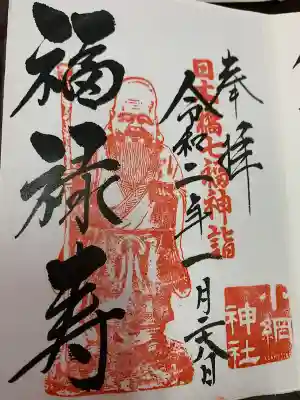 奉拝
日本橋七福神詣
令和二年一月六日
福禄寿
小網
神社